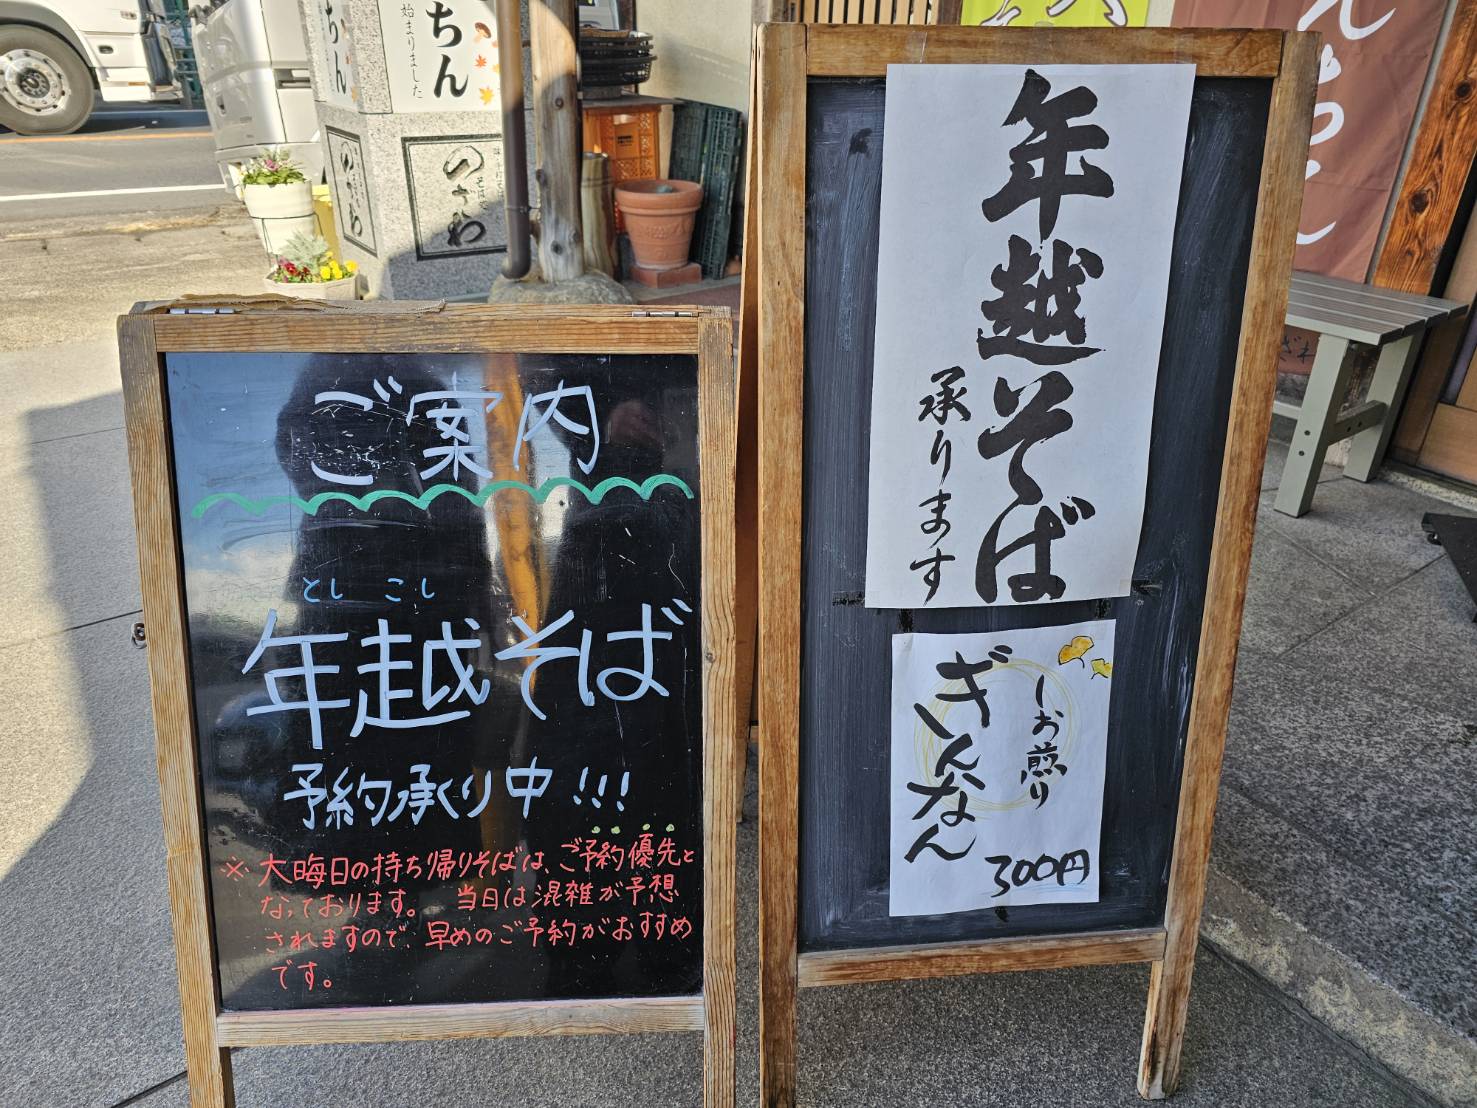 ご案内
とし こし
年越そば
予約承り中!!!
※大晦日の持ち帰りそばは、ご予約優先と
なっております。 当日は混雑が予想
されますので、早めのご予約がおすすめ
です。
年越そば
承ります
しお煎り
ぎんなん
300円
ちん
始まりました
のざわ